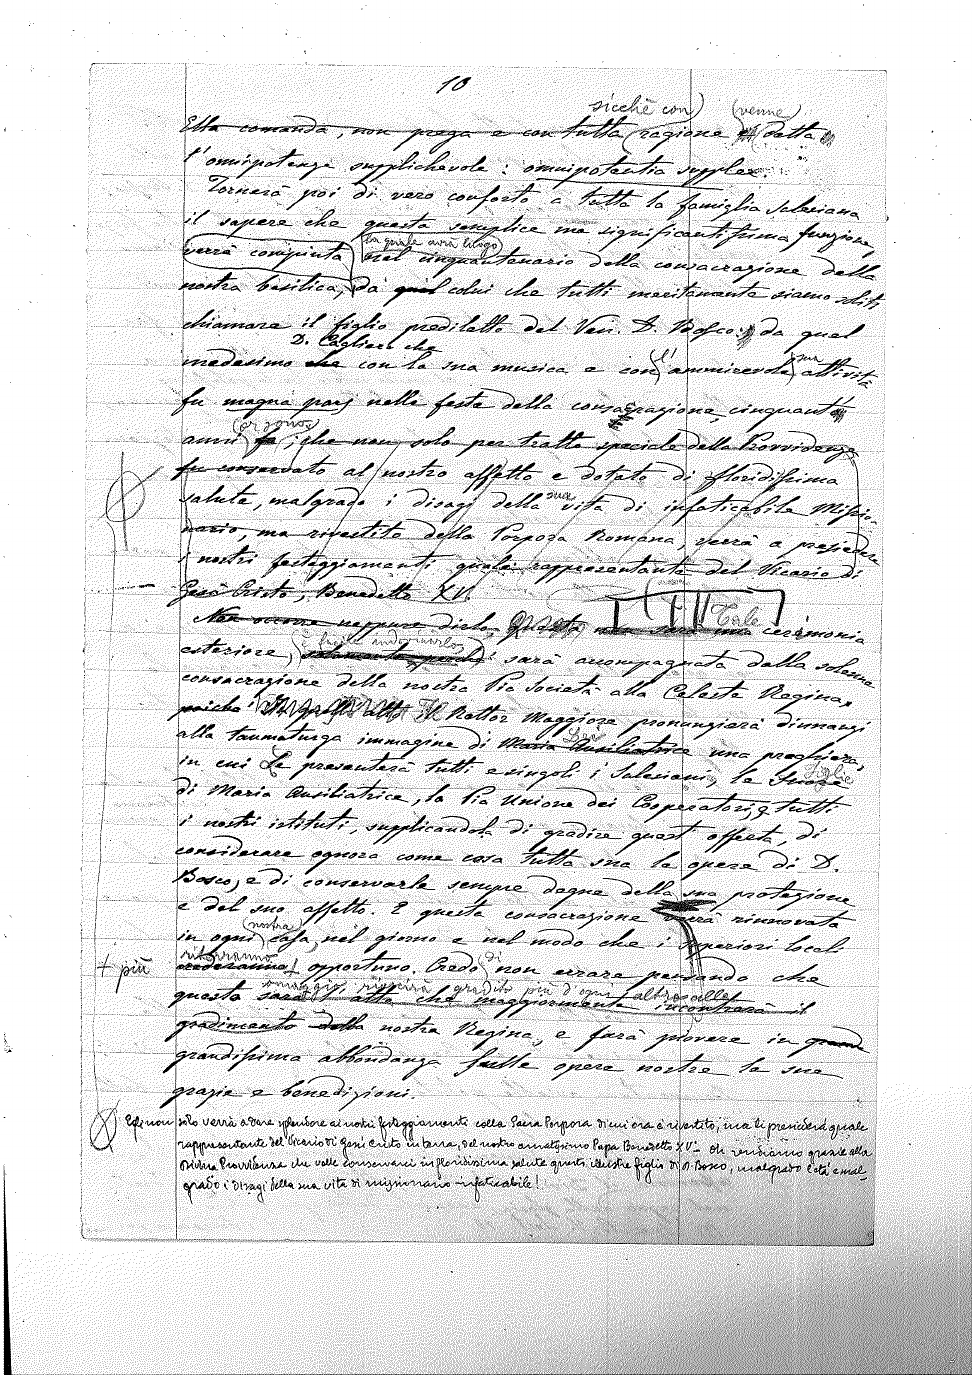 10
sicchè con) (venne)
Ella comanda, non prega e con tutta (ragione è detta
l'onnipotenza supplichevole: omnipotentia supplex.
Tornerà poi di vero conforto a tutta la famiglia Salesiana
il sapere che questa semplice ma significantissima funzione,
la quale avrà luogo
verrà compiuta nel cinquantenario della consacrazione della
nostra basilica, da quel colui che tutti meritamente siamo soliti
chiamare il figlio prediletto del Ven. D. Bosco: da quel
D. Cagliero che
medesimo che con la sua musica e con (l') ammirevole sua attività
fu magna pars nelle feste della consacrazione, cinquant'
(or sono)
anni fa; che non solo per tratto speciale della Provvidenza
fu conservato al nostro affetto e dotato di floridissima
salute, malgrado i disagi della sua vita di infaticabile Missio-
nario, ma rivestito della Porpora Romana, verrà a presiedere
i nostri festeggiamenti quale rappresentante del Vicario di
Gesù Cristo, Benedetto XV.
Non occorre neppure dirlo. Questa non sarà una Tale cerimonia
è facile indovinarlo
esteriore, solamente, poichè sarà accompagnata dalla solenne
consacrazione della nostra Pia Società alla Celeste Regina,
poichè il Rettor Maggiore pronunzierà dinnanzi
Lei
alla taumaturga immagine di Maria Ausiliatrice una preghiera,
in cui Le presenterà tutti e singoli i Salesiani, le Suore
Figlie
di Maria Ausiliatrice, la Pia Unione dei Cooperatori, e tutti
i nostri istituti, supplicandola di gradire quest' offerta, di
considerare ognora come cosa tutta sua le opere di D.
Bosco, e di conservarle sempre degne della sua protezione
e del suo affetto. E questa consacrazione verrà rinnovata
(nostra)
in ogni casa, nel giorno e nel modo che i superiori locali
riterranno
+ più crederanno + opportuno. Credo di non errare pensando che
omaggio riuscirà gradito più d'ogni altro alla
questo sarà l'atto che maggiormente incontrerà il
gradimento della nostra Regina, e farà piovere in grande
grandissima abbondanza sulle opere nostre le sue
grazie e benedizioni.
Egli non solo verrà a dare splendore ai nostri festeggiamenti colla Sacra Porpora di cui ora è rivestito, ma li presiederà quale
rappresentante del Vicario di Gesù Cristo in terra, del nostro amatissimo Papa Benedetto XV. Oh rendiamo grazie alla
Divina Provvidenza che volle conservarci in floridissima salute questo illustre figlio di D. Bosco, malgrado l'età e mal-
grado i disagi della sua vita di missionario infaticabile!